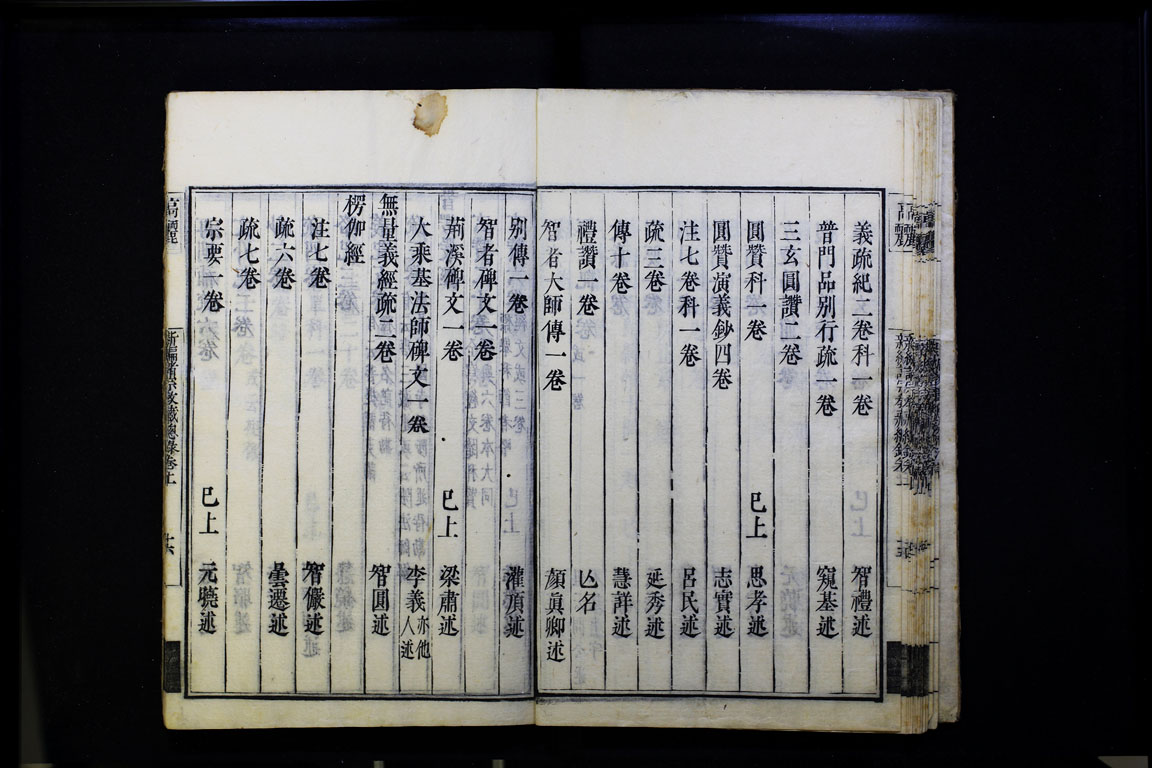 義疏紀二卷科一卷 智禮述
普門品別行疏一卷 窺基述
三玄圓讚二卷
圓贊科一卷 巳上 思孝述
圓贊演義鈔四卷 志實述
注七卷科一卷 呂民述
疏三卷 延秀述
傳十卷 慧詳述
禮讚一卷 亾名
智者大師傳一卷 顏眞卿述
別傳一卷 灌頂述
智者碑文一卷
荊溪碑文一卷 巳上 梁肅述
大乘基法師碑文一卷 李義亦他人述
無量義經疏二卷 智圓述
楞伽經
注七卷 智儼述
疏六卷 曇遷述
疏七卷
宗要一卷 巳上 元曉述
高麗 新編諸宗教藏總錄卷上 十六